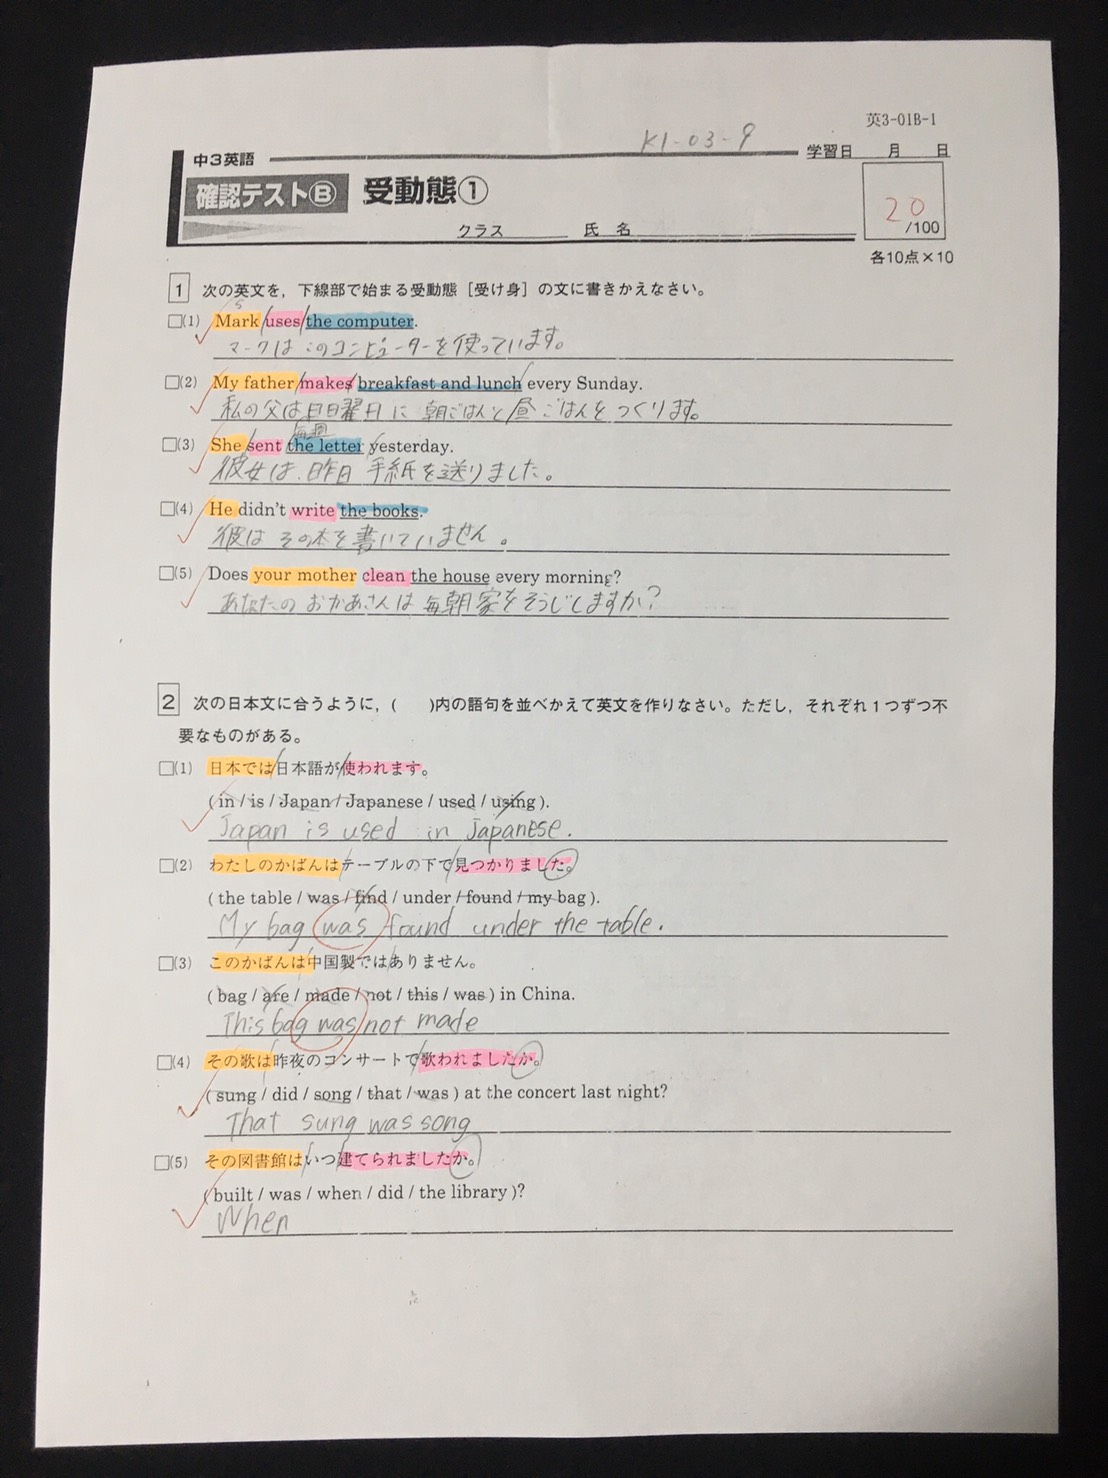 英3-01B-1
K1-03-9
学習日 月 日
中3英語
確認テストⒷ 受動態①
クラス 氏名
20
/100
各10点×10
1 次の英文を，下線部で始まる受動態［受け身］の文に書きかえなさい。
□(1) Mark/uses/the computer.
マークはこのコンピューターを使っています。
□(2) My father/makes/breakfast and lunch/every Sunday.
私の父は日曜日に朝ごはんと昼ごはんをつくります。
毎週
□(3) She/sent the letter/yesterday.
彼女は、昨日 手紙を送りました。
□(4) He didn't write the books.
彼は その本を書いていません。
□(5) Does your mother clean the house every morning?
あなたの おかあさんは 毎朝家をそうじしますか？
2 次の日本文に合うように，(　)内の語句を並べかえて英文を作りなさい。ただし，それぞれ1つずつ不
要なものがある。
□(1) 日本では/日本語が/使われます。
( in / is / Japan / Japanese / used / using ).
Japan is used in Japanese.
□(2) わたしのかばんは/テーブルの下で/見つかりました。
( the table / was / find / under / found / my bag ).
My bag was found under the table.
□(3) このかばんは/中国製では/ありません。
( bag / are / made / not / this / was ) in China.
This bag was not made
□(4) その歌は/昨夜のコンサートで/歌われましたか。
( sung / did / song / that / was ) at the concert last night?
That sung was song
□(5) その図書館は/いつ/建てられましたか。
( built / was / when / did / the library )?
When